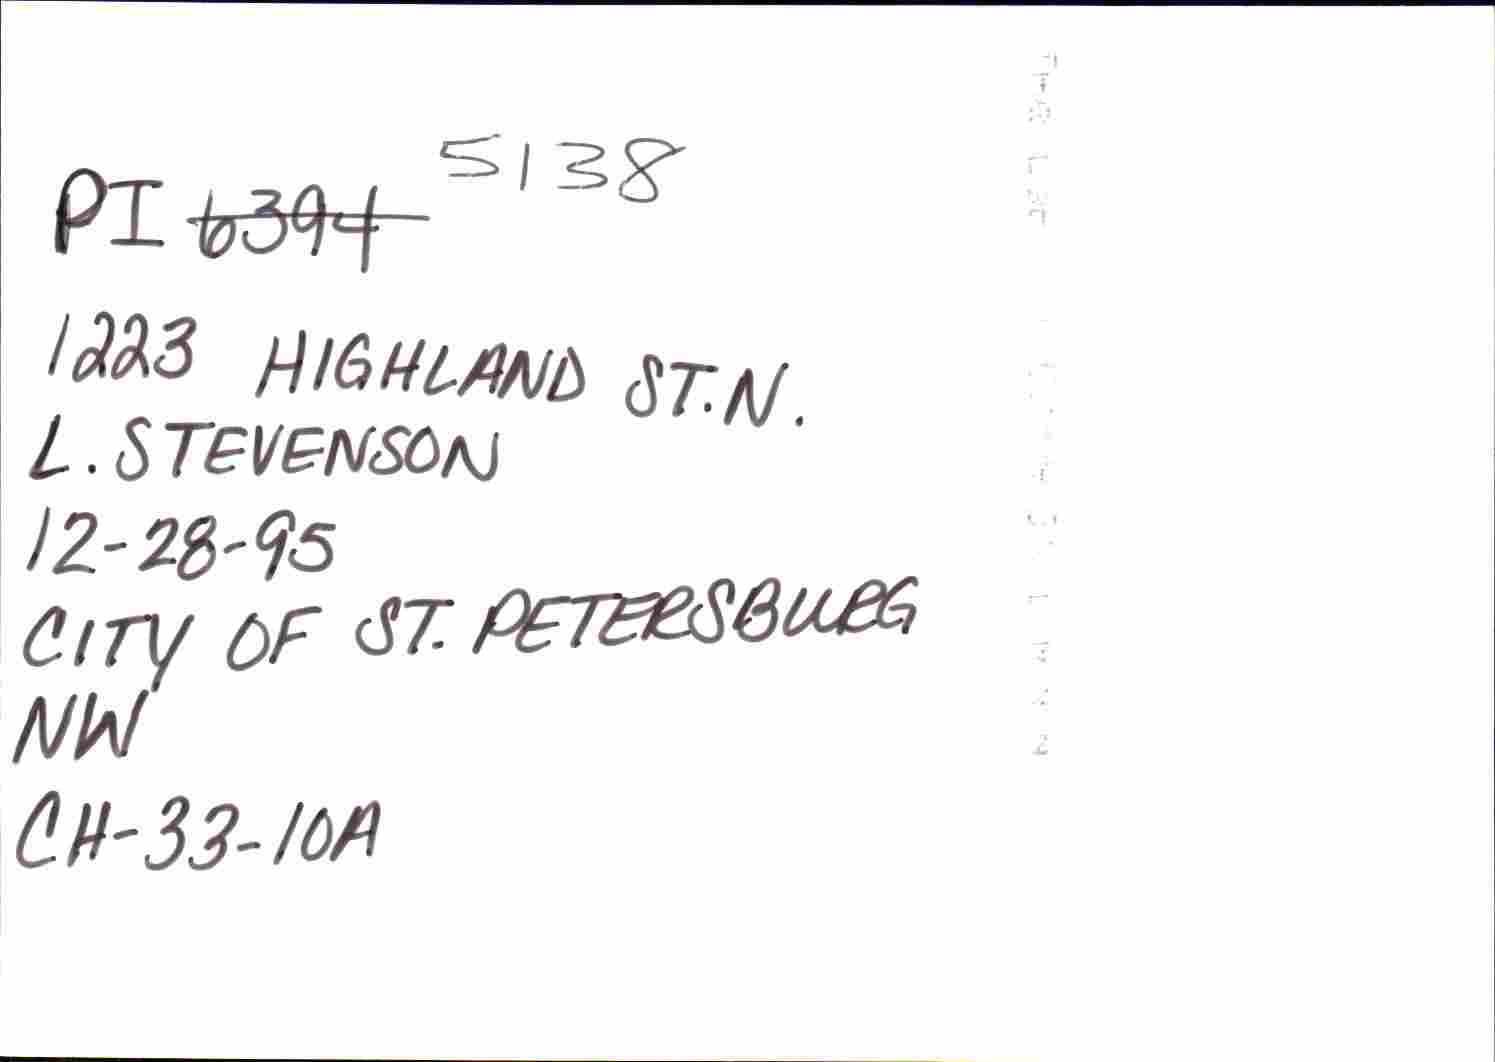 PI 6394 5138
1223 HIGHLAND ST. N.
L. STEVENSON
12-28-95
CITY OF ST. PETERSBURG
NW
CH-33-10A